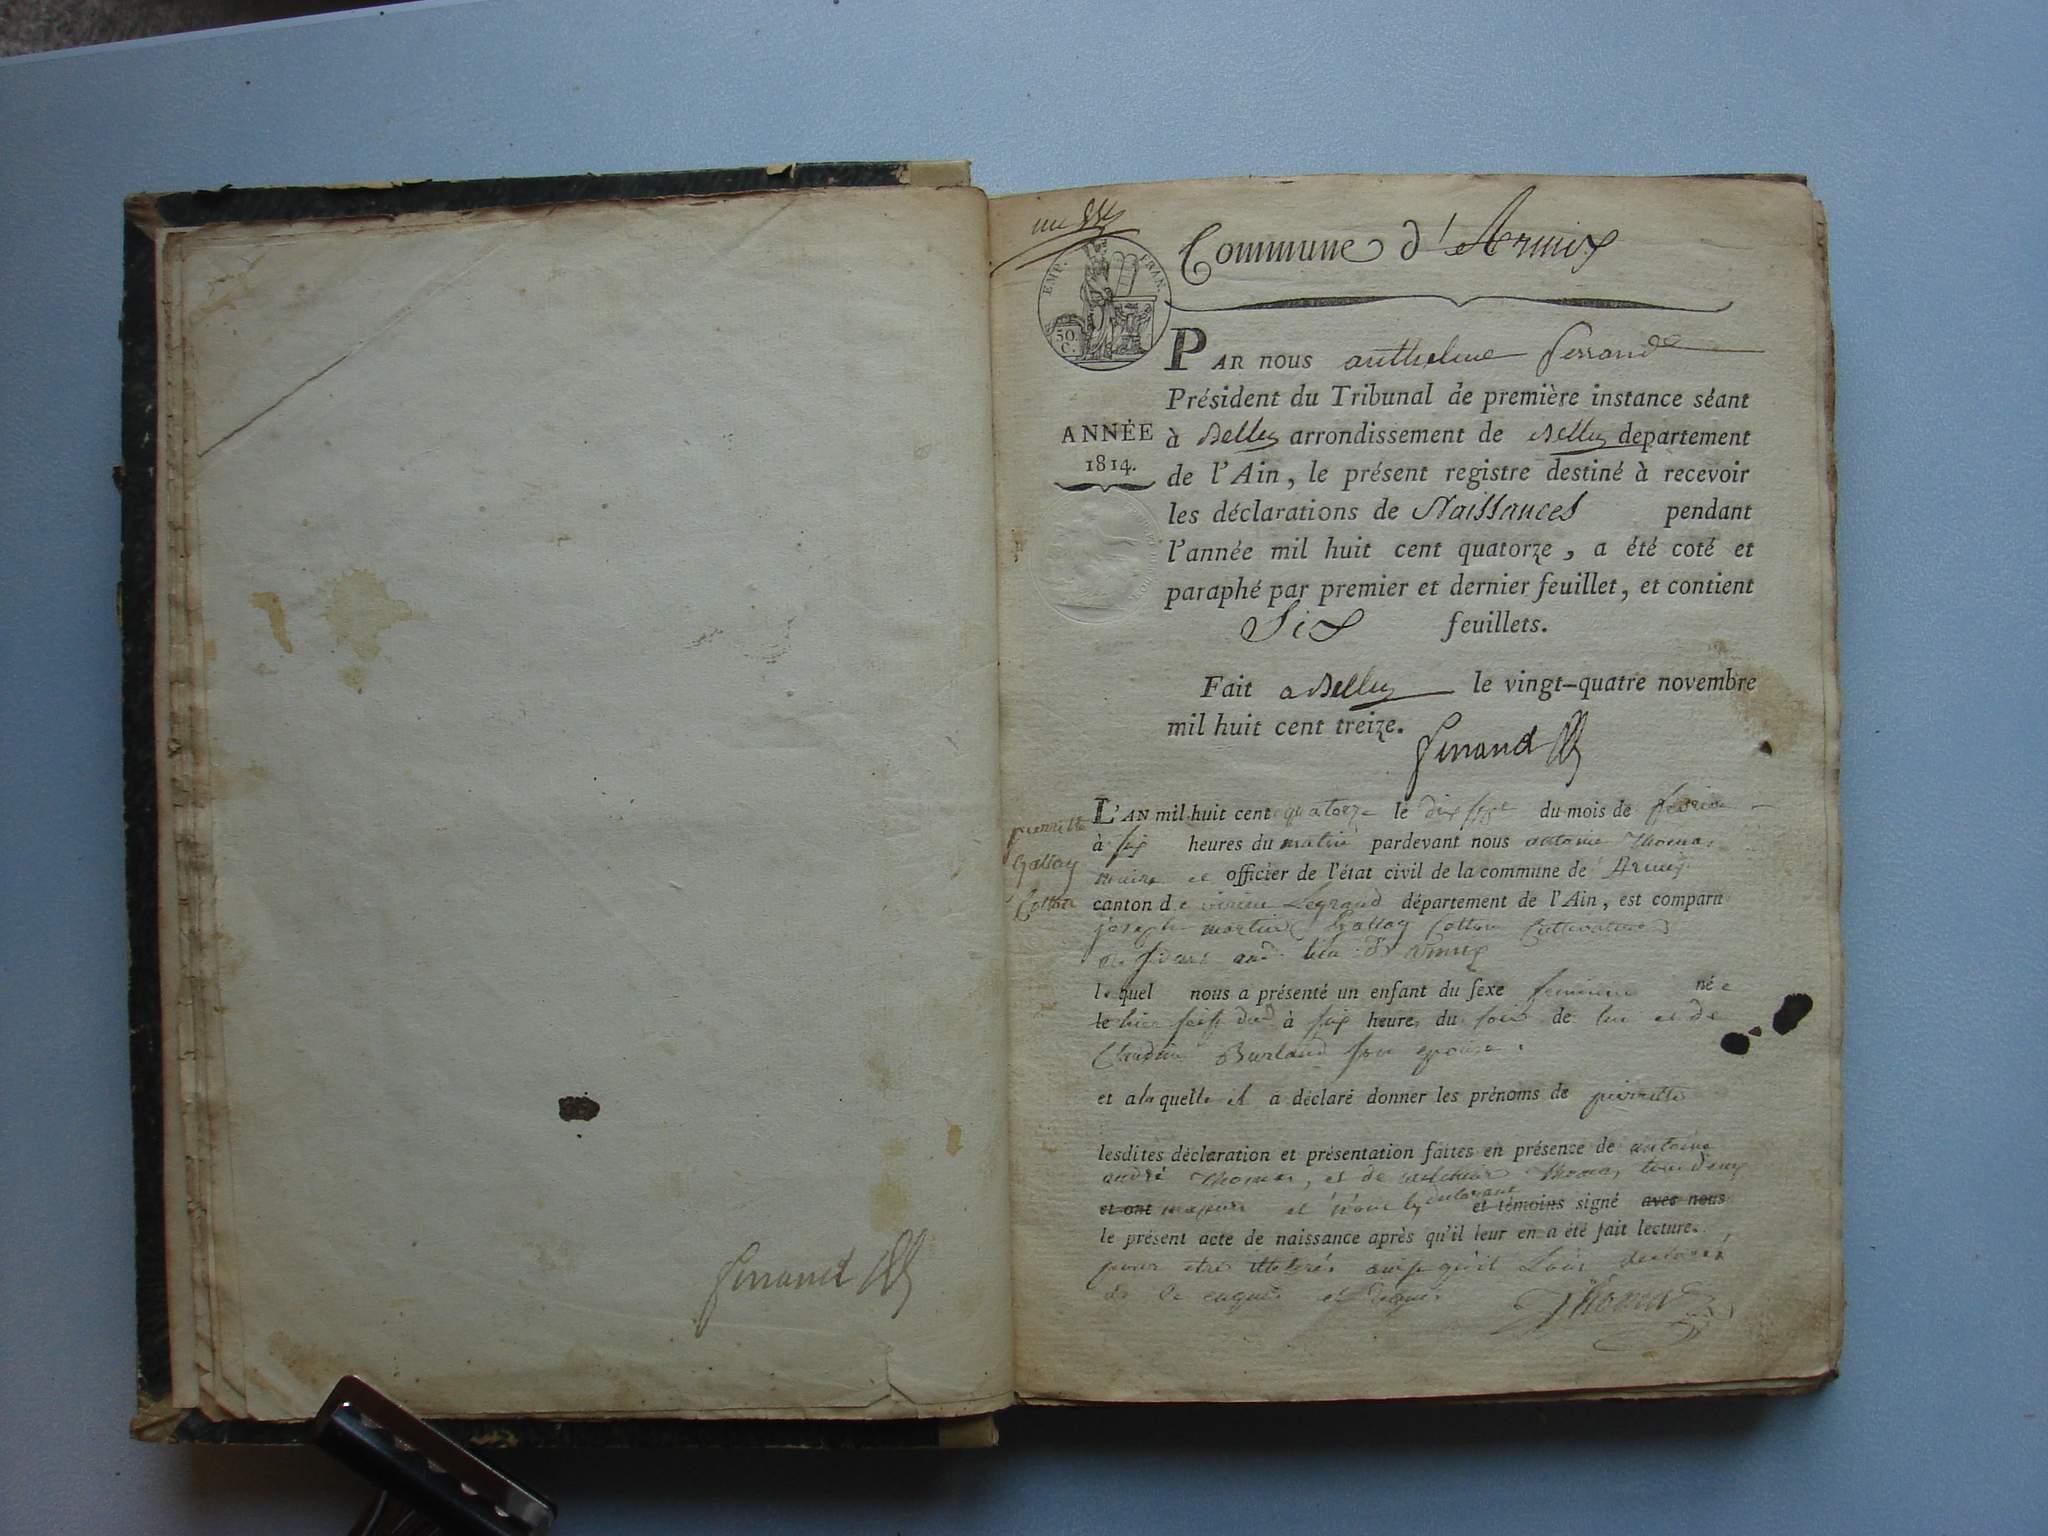 Ferrand
Commune d'Armix
EMP. FRAN.
50 C.
PAR nous anthelme ferrand
Président du Tribunal de première instance séant
ANNÉE
1814.
à Belley arrondissement de Belley departement
de l'Ain, le présent registre destiné à recevoir
les déclarations de Naissances pendant
l'année mil huit cent quatorze, a été coté et
paraphé par premier et dernier feuillet, et contient
Six feuillets.
Fait a Belley le vingt-quatre novembre
mil huit cent treize.
Ferrand
pierrette
Gallay
Cottin
L'AN mil huit cent quatorze le du mois de fevrier
à six heures du matin pardevant nous antoine Thomas
maire et officier de l'état civil de la commune de Armix
canton de virieu Legrand département de l'Ain, est comparu
joseph martin Cultivateur
lequel nous a présenté un enfant du sexe feminin née
le hier à six heures du soir de lui et de
Claudine Burland son epouse.
et a laquelle il a déclaré donner les prénoms de pierrette
lesdites déclaration et présentation faites en présence de antoine
andré Thomas, et de Thomas tous deux
et ont majeurs et témoins signé avec nous
le présent acte de naissance après qu'il leur en a été fait lecture.
pour etre illetérés déclaré
de ce enquis
Thomas